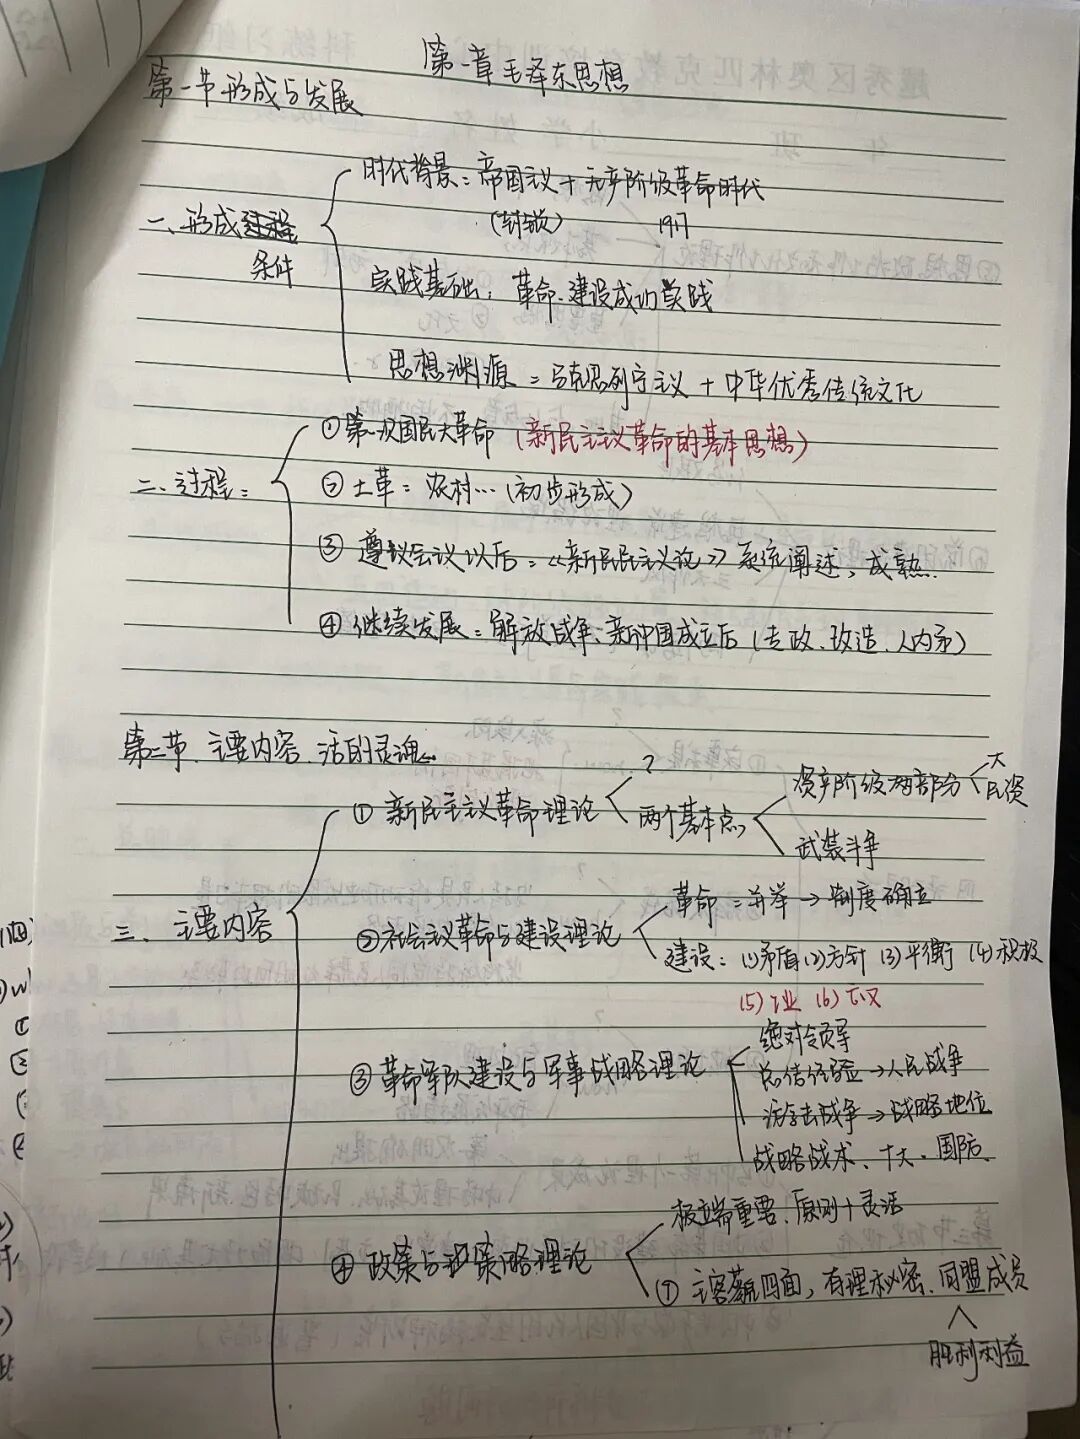 第一章毛泽东思想
第一节形成与发展
时代背景：帝国主义+无产阶级革命时代
(封锁) 19.17
一、形成条件
实践基础：革命、建设成功实践
思想渊源：马克思列宁主义+中华优秀传统文化
①第一次国民大革命（新民主主义革命的基本思想）
二、过程：
②土革：农村…（初步形成）
③遵义会议以后：《新民民主义论》系统阐述，成熟.
④继续发展：解放战争、新中国成立后（专政、改造、人内矛）
第二节、主要内容、活的灵魂
①新民主主义革命理论
?
两个基本点
资产阶级两部分
大
民资
武装斗争
三、主要内容
②社会主义革命与建设理论
革命：并举→制度确立
建设：(1)矛盾(2)方针(3)平衡(4)积极
(5)工业(6)
③革命军队建设与军事战略理论
绝对领导
总结经验→人民战争
游击战争→战略地位
战略战术、十大、国防、
④政策与策略理论
极端重要、原则+灵活
⑦主客观四面，有理秘密、同盟成员
胜利利益